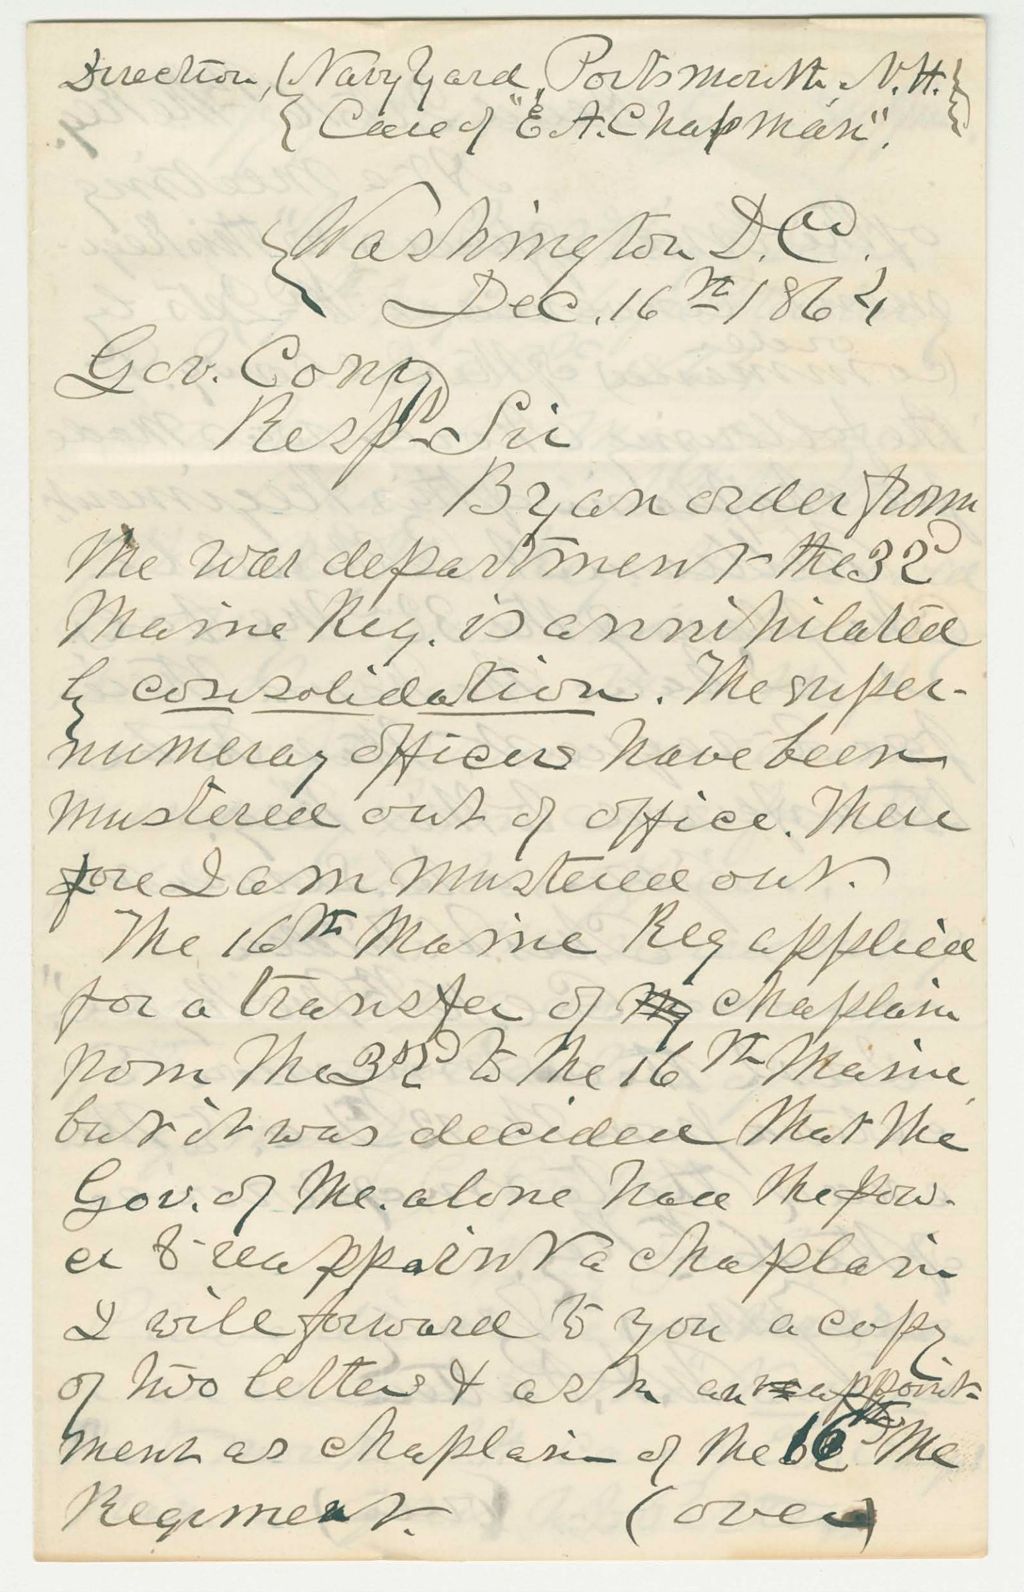 Direction, (Navy Yard, Portsmouth, N.H.
Care of "E A. Chapman".
Washington D.C.
Dec. 16th 1864
Gov. Cony
Resp. Sir
By an order from
the War department the 32d
Maine Reg. is annihilated
by consolidation. The super-
numeray officers have been
mustered out of office. There
fore I am mustered out.
The 16th Maine Reg applied
for a transfer of my chaplain
from the 32d to the 16th Maine,
but it was decided that the
Gov. of Me. alone had the pow-
er to reappoint a chaplain
I will forward to you a copy
of two letters & ask an appoint-
ment as chaplain of the 16th Me
Regiment. (over)